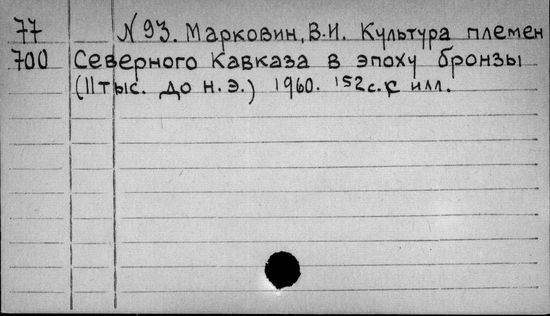 77 N 93. Марковин, В.И. Культура племен
700 Северного Кавказа в эпоху бронзы
(II тыс. до н.э.) 1960. 152с. с илл.